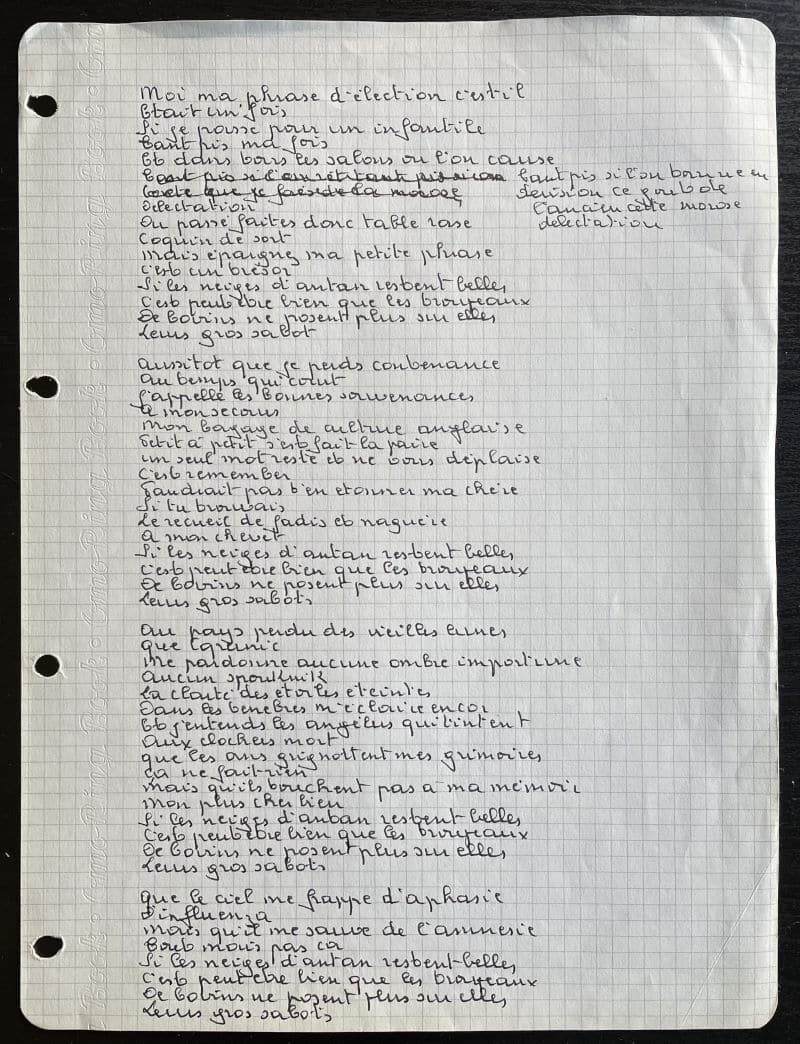 Moi ma phrase d'élection c'est il
Etait un' fois
Si je passe pour un infantile
tant pis ma fois
Et dans tous les salons ou l'on cause
tant pis si l'on tourne en
derision ce gout de
l'ancien cette morose
delectation
Delectation
Du passé faites donc table rase
Coquin de sort
mais épargnez ma petite phrase
c'est un tresor
Si les neiges d'antan restent belles
C'est peut être bien que les troupeaux
De bovins ne posent plus sur elles
Leurs gros sabot
aussitot que je perds contenance
au temps qui court
J'appelle les bonnes souvenances
a mon secours
Mon bagage de culture anglaise
Petit à petit s'est fait la paire
un seul mot reste et ne vous déplaise
C'est remember
Faudrait pas t'en etonner ma chère
Si tu trouvais
Le recueil de jadis et naguère
a mon chevet
Si les neiges d'antan restent belles
c'est peut être bien que les troupeaux
De bovins ne posent plus sur elles
Leurs gros sabots
Au pays perdu des vieilles lunes
que
me pardonne aucune ombre importune
aucun spoutnik
La clarté des etoiles eteintes
Dans les tenebres m'eclaire encor
Et j'entends les angélus qui tintent
Aux clochers mort
que les ans grignottent mes grimoires
ça ne fait rien
mais qu'ils touchent pas à ma mémoir
mon plus cher bien
Si les neiges d'antan restent belles
C'est peut être bien que les troupeaux
De bovins ne posent plus sur elles
Leurs gros sabots
que le ciel me frappe d'aphasie
D'influenza
mais qu'il me sauve de l'amnesie
tout mais pas ca
Si les neiges d'antan restent belles
C'est peut être bien que les troupeaux
De bovins ne posent plus sur elles
Leurs gros sabots